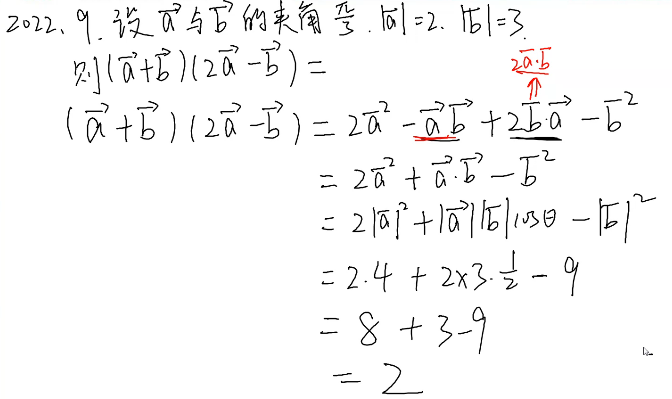 2022.9.设a⃗与b⃗的夹角π/3.|a⃗|=2.|b⃗|=3.
则(a⃗+b⃗)(2a⃗-b⃗)=
2a⃗·b⃗
(a⃗+b⃗)(2a⃗-b⃗)=2a⃗²-a⃗b⃗+2b⃗·a⃗-b⃗²
=2a⃗²+a⃗·b⃗-b⃗²
=2|a⃗|²+|a⃗||b⃗|cosθ-|b⃗|²
=2·4+2×3·1/2-9
=8+3-9
=2